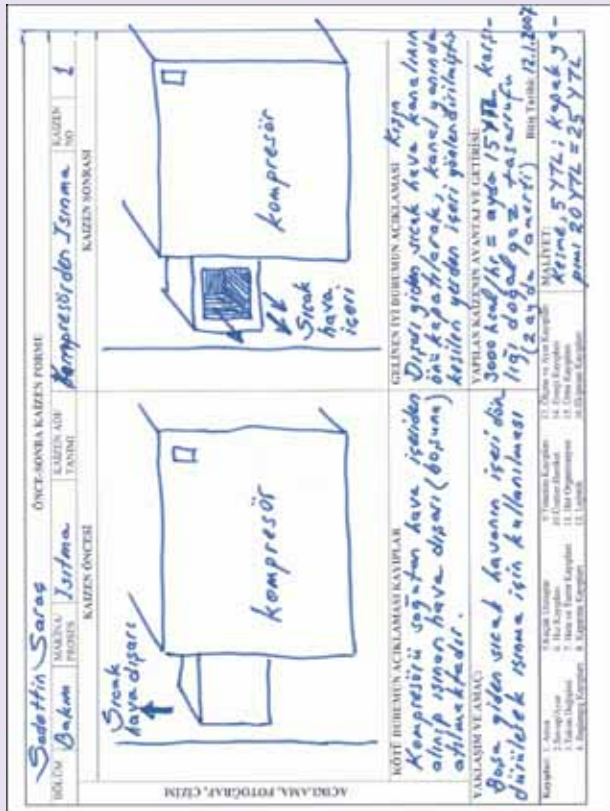 Sadettin Saraç
ÖNCE-SONRA KAIZEN FORMU
BÖLÜM Bakım
MAKİNA/ PROSES Isıtma
KAIZEN ADI/ TANIMI Kompresörden Isınma
KAIZEN NO 1
AÇIKLAMA, FOTOĞRAF, ÇİZİM
KAIZEN ÖNCESİ
Sıcak
hava dışarı
kompresör
KAIZEN SONRASI
Sıcak
hava
içeri
kompresör
KÖTÜ DURUMUN AÇIKLAMASI KAYIPLAR
Kompresörü soğutan hava içeriden
alınıp ısınan hava dışarı (boşuna)
atılmaktadır.
GELİNEN İYİ DURUMUN AÇIKLAMASI Kışın
Dışarı giden sıcak hava kanalının
önü kapatılarak, kanal yanından
kesilen yerden içeri yönlendirilmiştir
YAKLAŞIM VE AMAÇ:
Boşa giden sıcak havanın içeri dön
dürülerek ısınma için kullanılması
YAPILAN KAIZENİN AVANTAJ VE GETİRİSİ:
3000 kcal/hr = ayda 15 YTL karşı-
lığı doğal gaz tasarrufu
(2 ayda amorti)
Bitiş Tarihi: 12.1.2007
Kayıplar: 1. Arıza
2. Set-up/Ayar
3. Takım Değişimi
4. Başlangıç Kayıpları
5. Küçük Duruşlar
6. Hız Kayıpları
7. Hata ve Tamir Kayıpları
8. Kapatma Kayıpları
9. Yönetim Kayıpları
10. Üretim Hareket
11. Hat Organizasyon
12. Lojistik
13. Ölçme ve Ayar Kayıpları
14. Enerji Kayıpları
16. Ekipman Kayıpları
MALİYET:
Kesme, 5 YTL; kapak ya-
pımı 20 YTL = 25 YTL